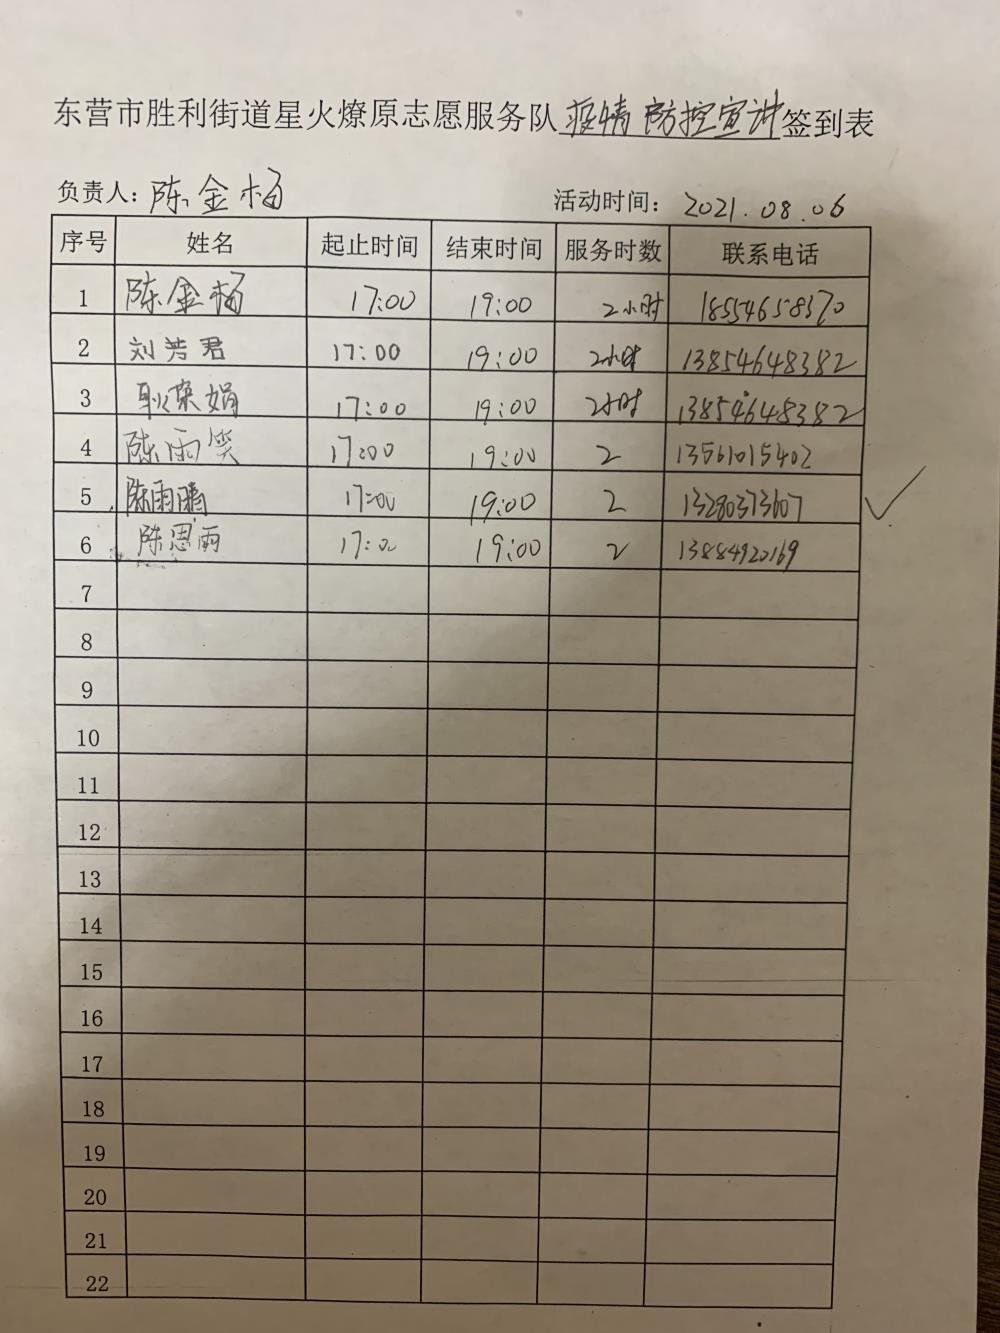 东营市胜利街道星火燎原志愿服务队疫情防控宣讲签到表
负责人: 陈金杨 活动时间: 2021.08.06
序号 姓名 起止时间 结束时间 服务时数 联系电话
1 陈金杨 17:00 19:00 2小时 18554658370
2 刘芳君 17:00 19:00 2小时 13854648382
3 耿荣娟 17:00 19:00 2小时 13854648382
4 陈雨笑 17:00 19:00 2 13561015402
5 陈雨腾 17:00 19:00 2 13280373607
6 陈思雨 17:00 19:00 2 13884920169
7
8
9
10
11
12
13
14
15
16
17
18
19
20
21
22